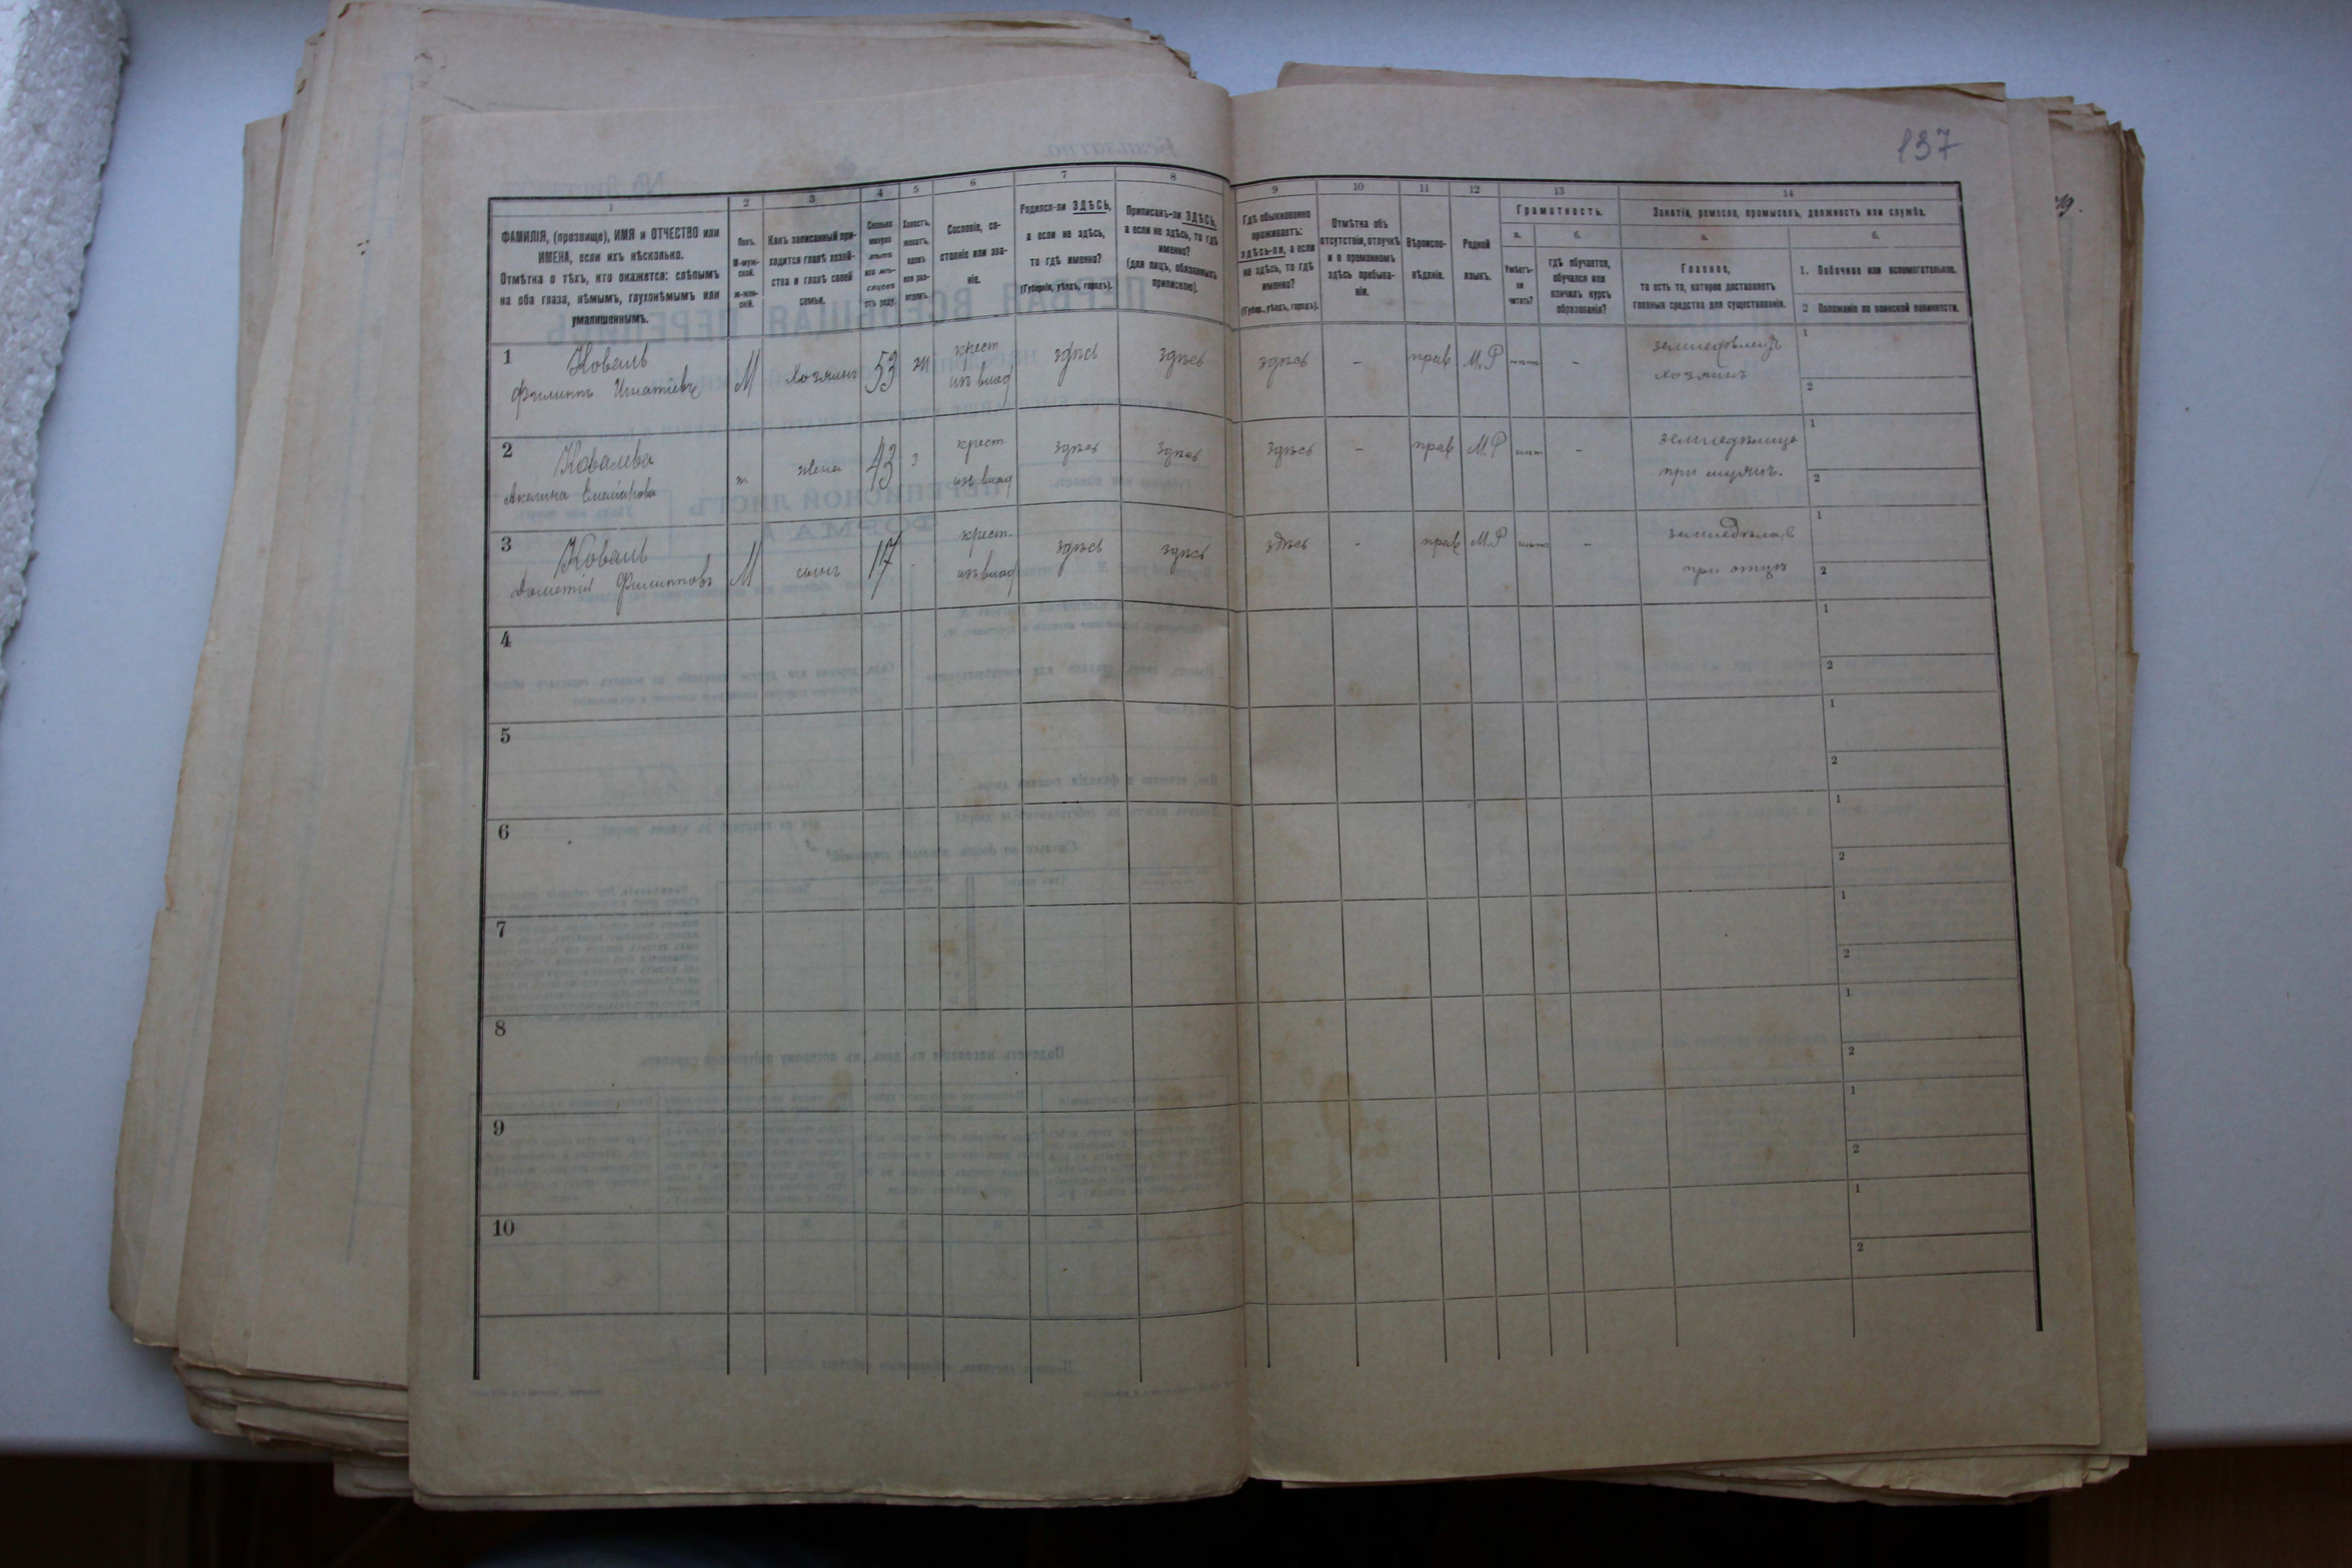 137
1
2
3
4
5
6
7
8
9
10
11
12
13
14
ФАМИЛІЯ, (прозвище), ИМЯ и ОТЧЕСТВО или
ИМЕНА, если ихъ нѣсколько.
Отмѣтка о тѣхъ, кто окажется: слѣпымъ
на оба глаза, нѣмымъ, глухонѣмымъ или
умалишеннымъ.
Полъ.
М-муж-
ской.
Ж-жен-
скій.
Какъ записанный при-
ходится главѣ хозяй-
ства и главѣ своей
семьи.
Сколько
минуло
лѣтъ
или мѣ-
сяцевъ
отъ роду.
Холостъ,
женатъ,
вдовъ
или раз-
веденъ.
Сословіе, со-
стояніе или зва-
ніе.
Родился-ли ЗДѢСЬ,
а если не здѣсь,
то гдѣ именно?
(Губернія, уѣздъ, городъ).
Приписанъ-ли ЗДѢСЬ,
а если не здѣсь, то гдѣ
именно?
(для лицъ, обязанныхъ
припискою).
Гдѣ обыкновенно
проживаетъ:
здѣсь-ли, а если
не здѣсь, то гдѣ
именно?
(Губер., уѣздъ, городъ).
Отмѣтка объ
отсутствіи, отлучкѣ
и о временномъ
здѣсь пребыва-
ніи.
Вѣроиспо-
вѣданіе.
Родной
языкъ.
Грамотность.
а.
б.
Умѣетъ-
ли
читать?
гдѣ обучается,
обучался или
кончилъ курсъ
образованія?
Занятіе, ремесло, промыселъ, должность или служба.
а.
б.
Главное,
то есть то, которое доставляетъ
главныя средства для существованія.
1. Побочное или вспомогательное.
2 Положеніе по воинской повинности.
1
Коваль
Филиппъ Игнатіевъ
М
хозяинъ
53
ж
крест
изъ влад
здѣсь
здѣсь
здѣсь
-
прав
М.Р
-
земледѣлецъ
хозяинъ
1
2
2
Ковалева
Акилина
ж.
жена
43
з
крест
изъ влад
здѣсь
здѣсь
здѣсь
-
прав
М.Р
-
при мужѣ.
1
2
3
Коваль
Дометій Филипповъ
М
сынъ
17
-
крест.
изъ влад
здѣсь
здѣсь
здѣсь
-
прав
М.Р
-
при отцѣ
1
2
4
1
2
5
1
2
6
1
2
7
1
2
8
1
2
9
1
2
10
1
2